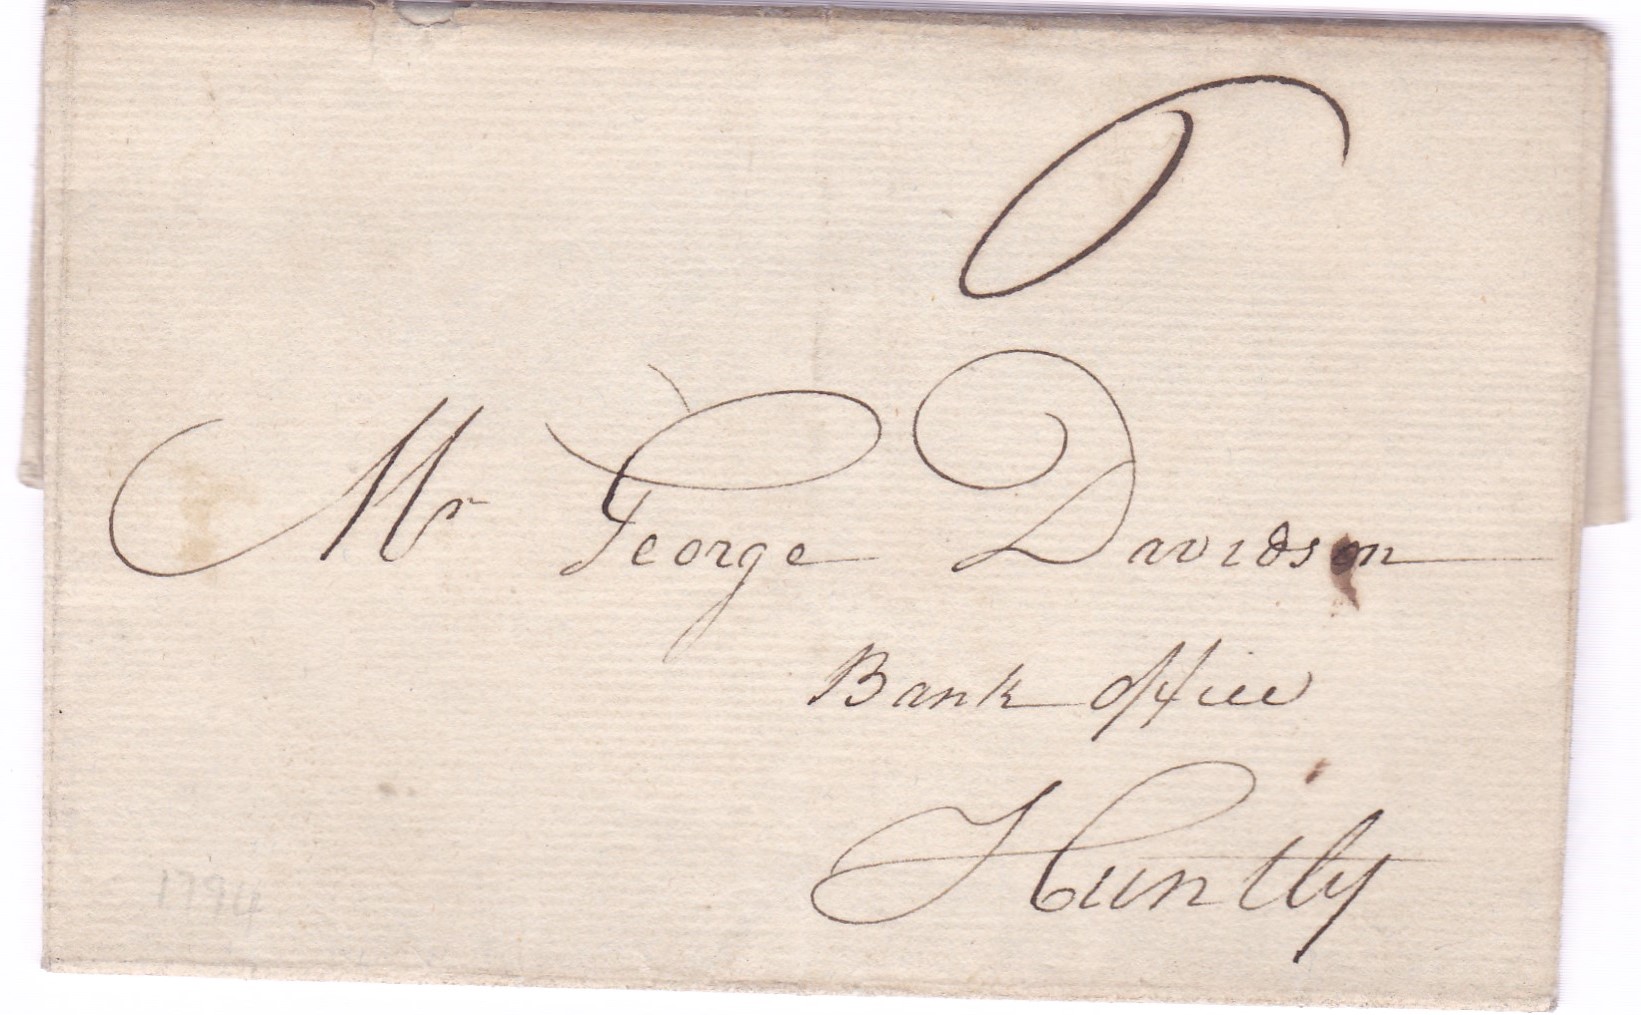 6
Mr George Davidson
Bank office
Huntly
1794